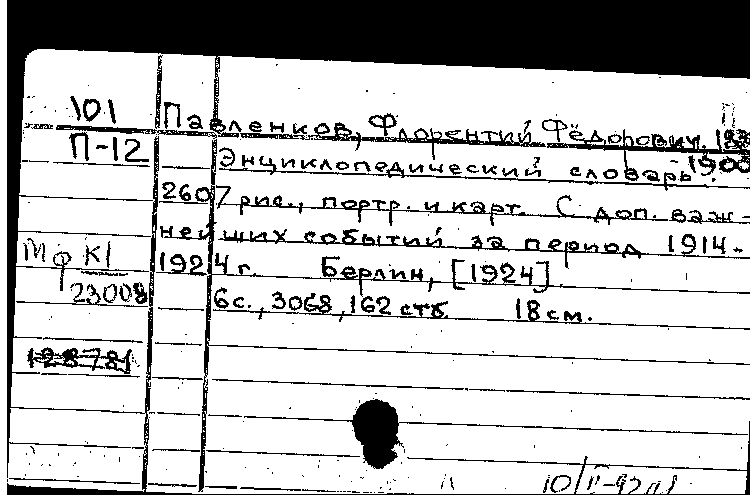 101
П-12
Павленков, Флорентий Фёдорович.
-1900
Энциклопедический словарь.
2607 рис., портр. и карт. С доп. важ-
нейших событий за период 1914-
1924 г. Берлин, [1924]
6с., 3068, 162 стб. 18 см.
Мф К1
23008
128781